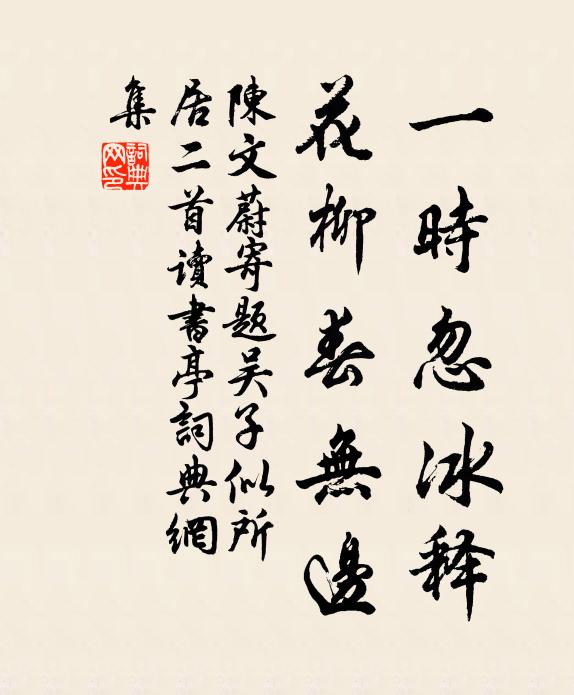 一時忽冰释
花柳春無邊
陳文蔚寄題吴子似所
居二首讀書亭詞典網
集
詞典
网印